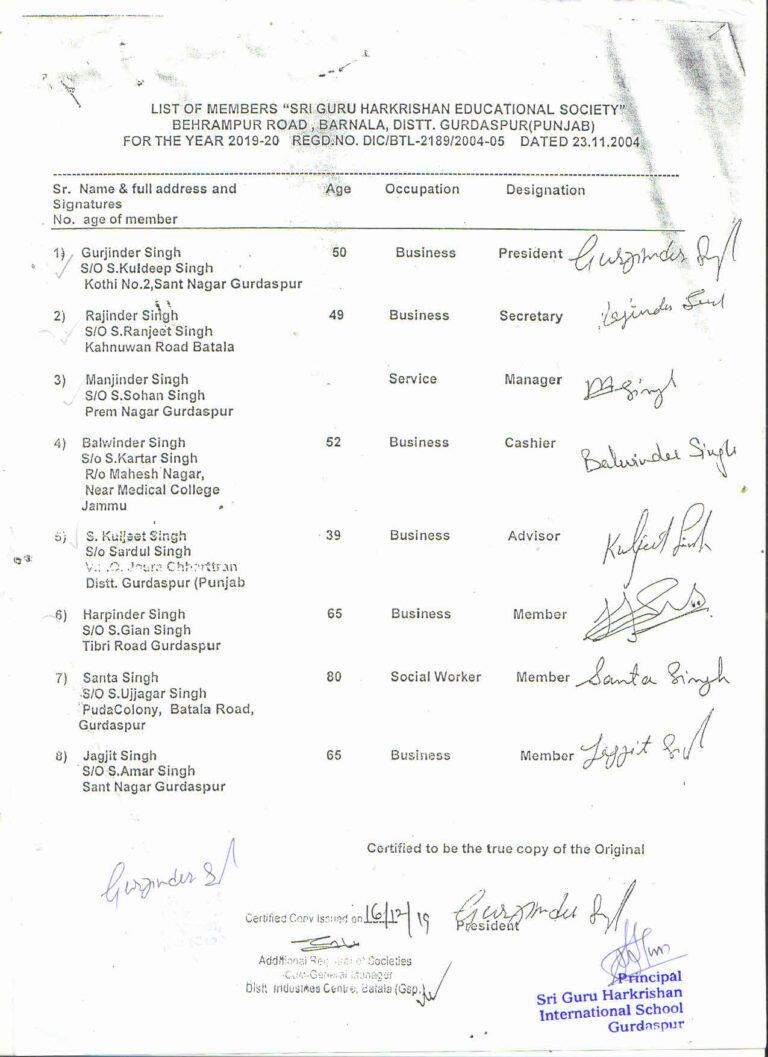 LIST OF MEMBERS "SRI GURU HARKRISHAN EDUCATIONAL SOCIETY"
BEHRAMPUR ROAD , BARNALA, DISTT. GURDASPUR(PUNJAB)
FOR THE YEAR 2019-20 REGD.NO. DIC/BTL-2189/2004-05 DATED 23.11.2004
Sr. Name & full address and Age Occupation Designation
Signatures
No. age of member
1) Gurjinder Singh 50 Business President Gurjinder Singh
S/O S.Kuldeep Singh
Kothi No.2,Sant Nagar Gurdaspur
2) Rajinder Singh 49 Business Secretary Rajinder Singh
S/O S.Ranjeet Singh
Kahnuwan Road Batala
3) Manjinder Singh Service Manager M Singh
S/O S.Sohan Singh
Prem Nagar Gurdaspur
4) Balwinder Singh 52 Business Cashier Balwinder Singh
S/o S.Kartar Singh
R/o Mahesh Nagar,
Near Medical College
Jammu
5) S. Kuljeet Singh 39 Business Advisor Kuljeet Singh
S/o Sardul Singh
Distt. Gurdaspur (Punjab
6) Harpinder Singh 65 Business Member
S/O S.Gian Singh
Tibri Road Gurdaspur
7) Santa Singh 80 Social Worker Member Santa Singh
S/O S.Ujjagar Singh
PudaColony, Batala Road,
Gurdaspur
8) Jagjit Singh 65 Business Member Jagjit Singh
S/O S.Amar Singh
Sant Nagar Gurdaspur
Certified to be the true copy of the Original
Gurjinder Singh
Certified Copy issued on 16/12/19 Gurjinder Singh
President
Additional Registrar of Societies
-Cum-General Manager
Distt. Industries Centre, Batala (Gsp.)
Principal
Sri Guru Harkrishan
International School
Gurdaspur